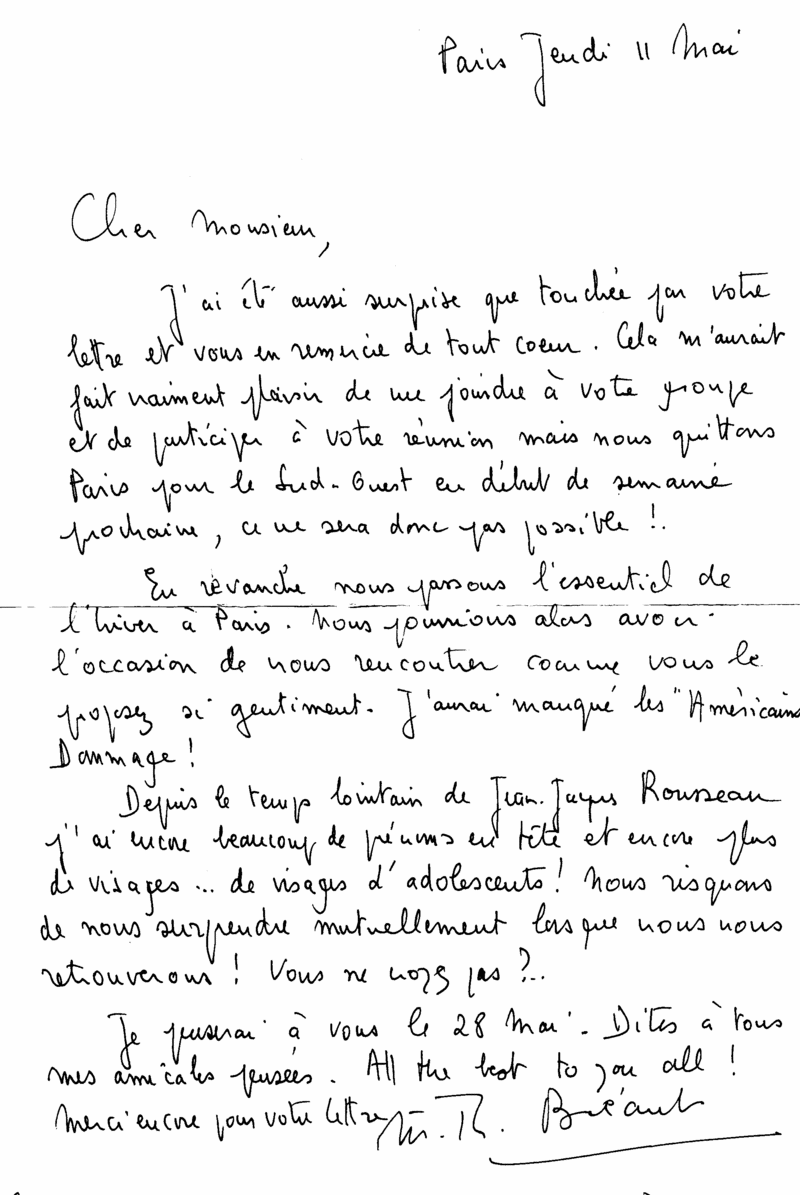 Paris Jeudi 11 Mai
Cher Monsieur,
J'ai été aussi surprise que touchée par votre
lettre et vous en remercie de tout coeur. Cela m'aurait
fait vraiment plaisir de me joindre à votre groupe
et de participer à votre réunion mais nous quittons
Paris pour le Sud-Ouest en début de semaine
prochaine, ce ne sera donc pas possible !
En revanche nous passons l'essentiel de
l'hiver à Paris. Nous pourrions alors avoir
l'occasion de nous rencontrer comme vous le
proposez si gentiment. J'aurai manqué les "Américains
Dommage !
Depuis le temps lointain de Jean-Jacques Rousseau
j'ai encore beaucoup de prénoms en tête et encore plus
de visages ... de visages d'adolescents ! Nous risquons
de nous surprendre mutuellement lorsque nous nous
retrouverons ! Vous ne croyez pas ?..
Je penserai à vous le 28 Mai. Dites à tous
mes amicales pensées. All the best to you all !
Merci encore pour votre lettre M. Th. Bréant